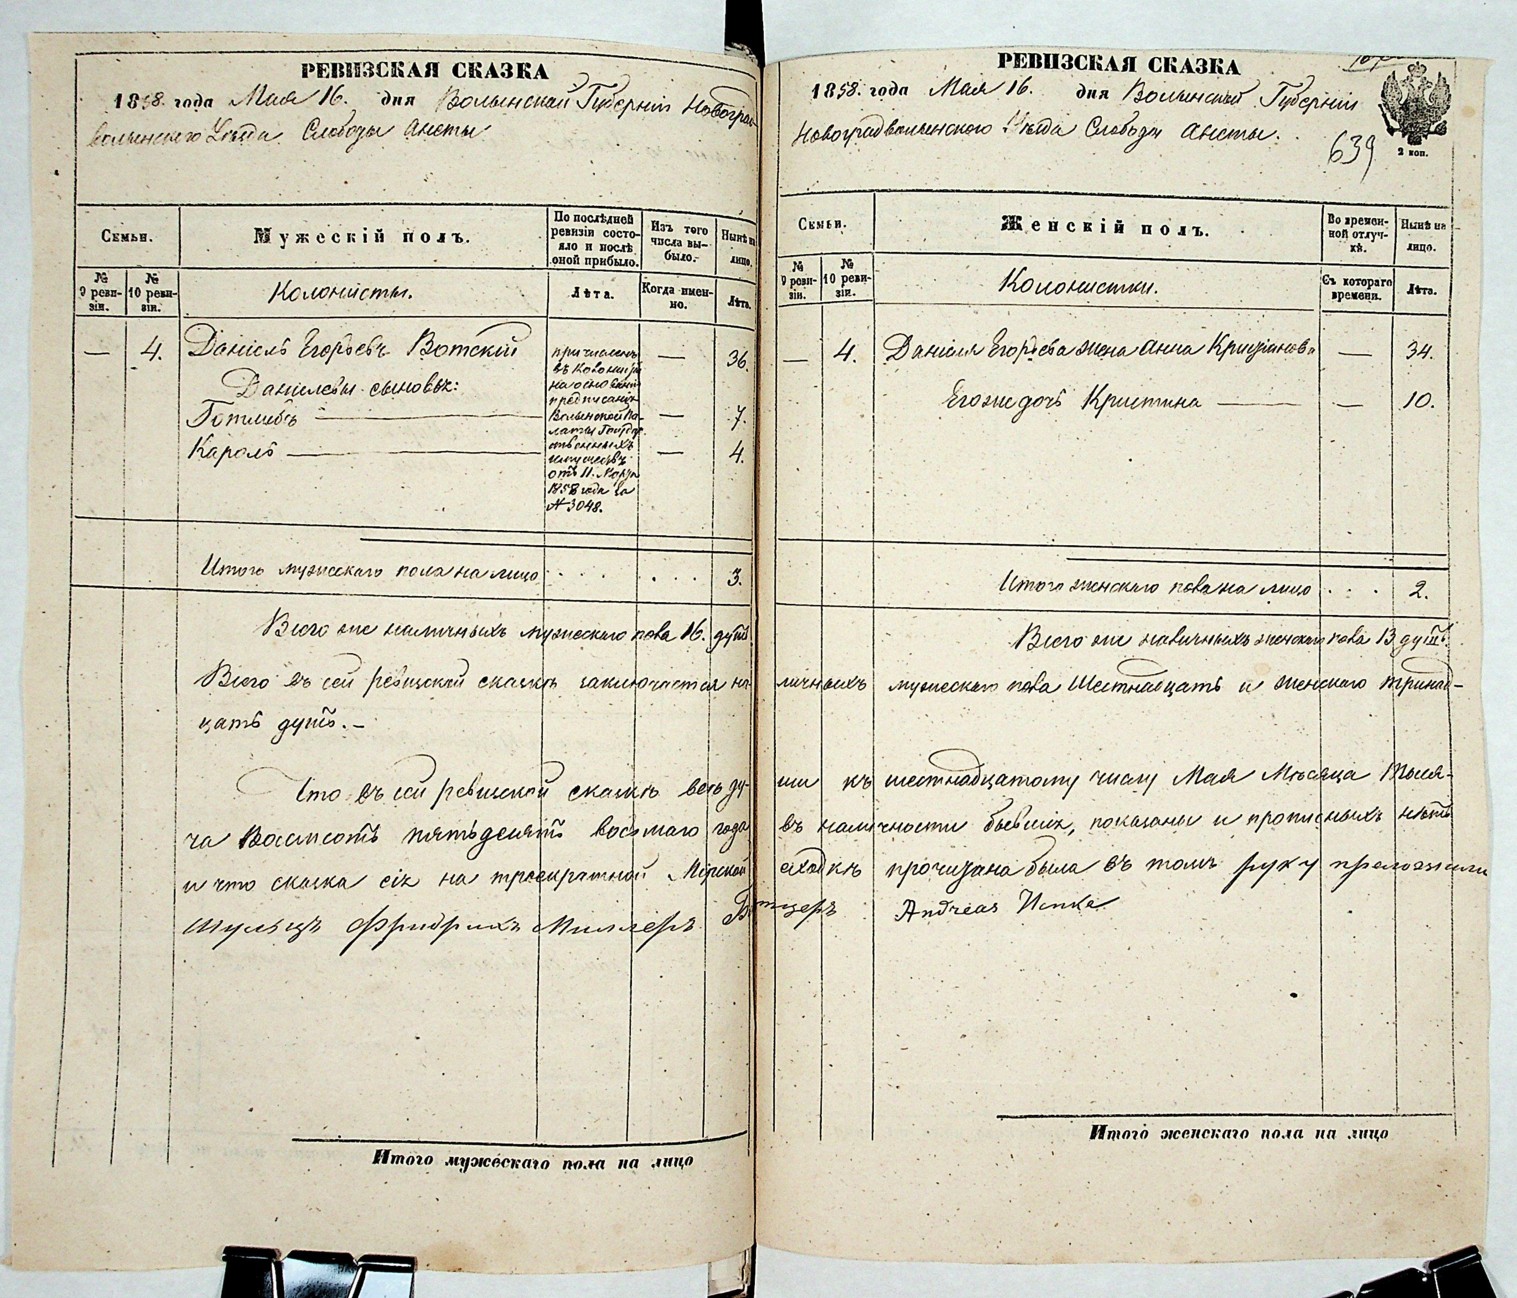 РЕВИЗСКАЯ СКАЗКА
1858. года Мая 16. дня Волынской Губерніи Новоград-
волынского Уѣзда Слободы Анеты
Семьи.
Мужескій полъ.
По послѣдней ревизіи состояло и послѣ оной прибыло.
Изъ того числа выбыло.
Нынѣ на лицо.
№ 9 ревизіи.
№ 10 ревизіи.
Колонисты.
Лѣта.
Когда именно.
Лѣта.
— 4. Даніелъ Егорьевъ Вотскій — 36.
Даніелевы сыновья:
Готлибъ — — 7.
Каролъ — — 4.
причисленъ
въ колонисты
на основаніи
предписанія
Волынской Па-
латы Государ-
ственныхъ
имуществъ
отъ 11. Марта
1858 года за
№ 3048.
Итого мужескаго пола на лицо . . . . . . . 3.
Всего же наличныхъ мужескаго пола 16. душъ
РЕВИЗСКАЯ СКАЗКА
1858. года Мая 16. дня Волынской Губерніи
Новоградволынского Уѣзда Слободы Анеты.
639
2 коп.
Семьи.
Женскій полъ.
Во временной отлучкѣ.
Нынѣ на лицо.
№ 9 ревизіи.
№ 10 ревизіи.
Колонистки.
Съ котораго времени.
Лѣта.
— 4. Даніеля Егорьева жена Анна Кришіанова — 34.
Его же дочь Кристина — — 10.
Итого женскаго пола на лицо . . . 2.
Всего же наличныхъ женскаго пола 13 душъ.
Всего въ сей ревизской сказкѣ заключается на- личныхъ мужескаго пола Шестнадцать и женскаго тринад-
цать душъ. —
Что въ сей ревизской сказкѣ всѣ ду- ши къ шестнадцатому числу Мая Мѣсяца Тыся-
ча Восемсотъ пятьдесятъ восьмаго года въ наличности бывшія, показаны и прописныхъ нѣтъ
и что сказка сія на троекратной Мірской сходкѣ прочитана была въ томъ руку приложили
Шульцъ Фридрихъ Миллеръ
Andreas
Итого мужескаго пола на лицо
Итого женскаго пола на лицо